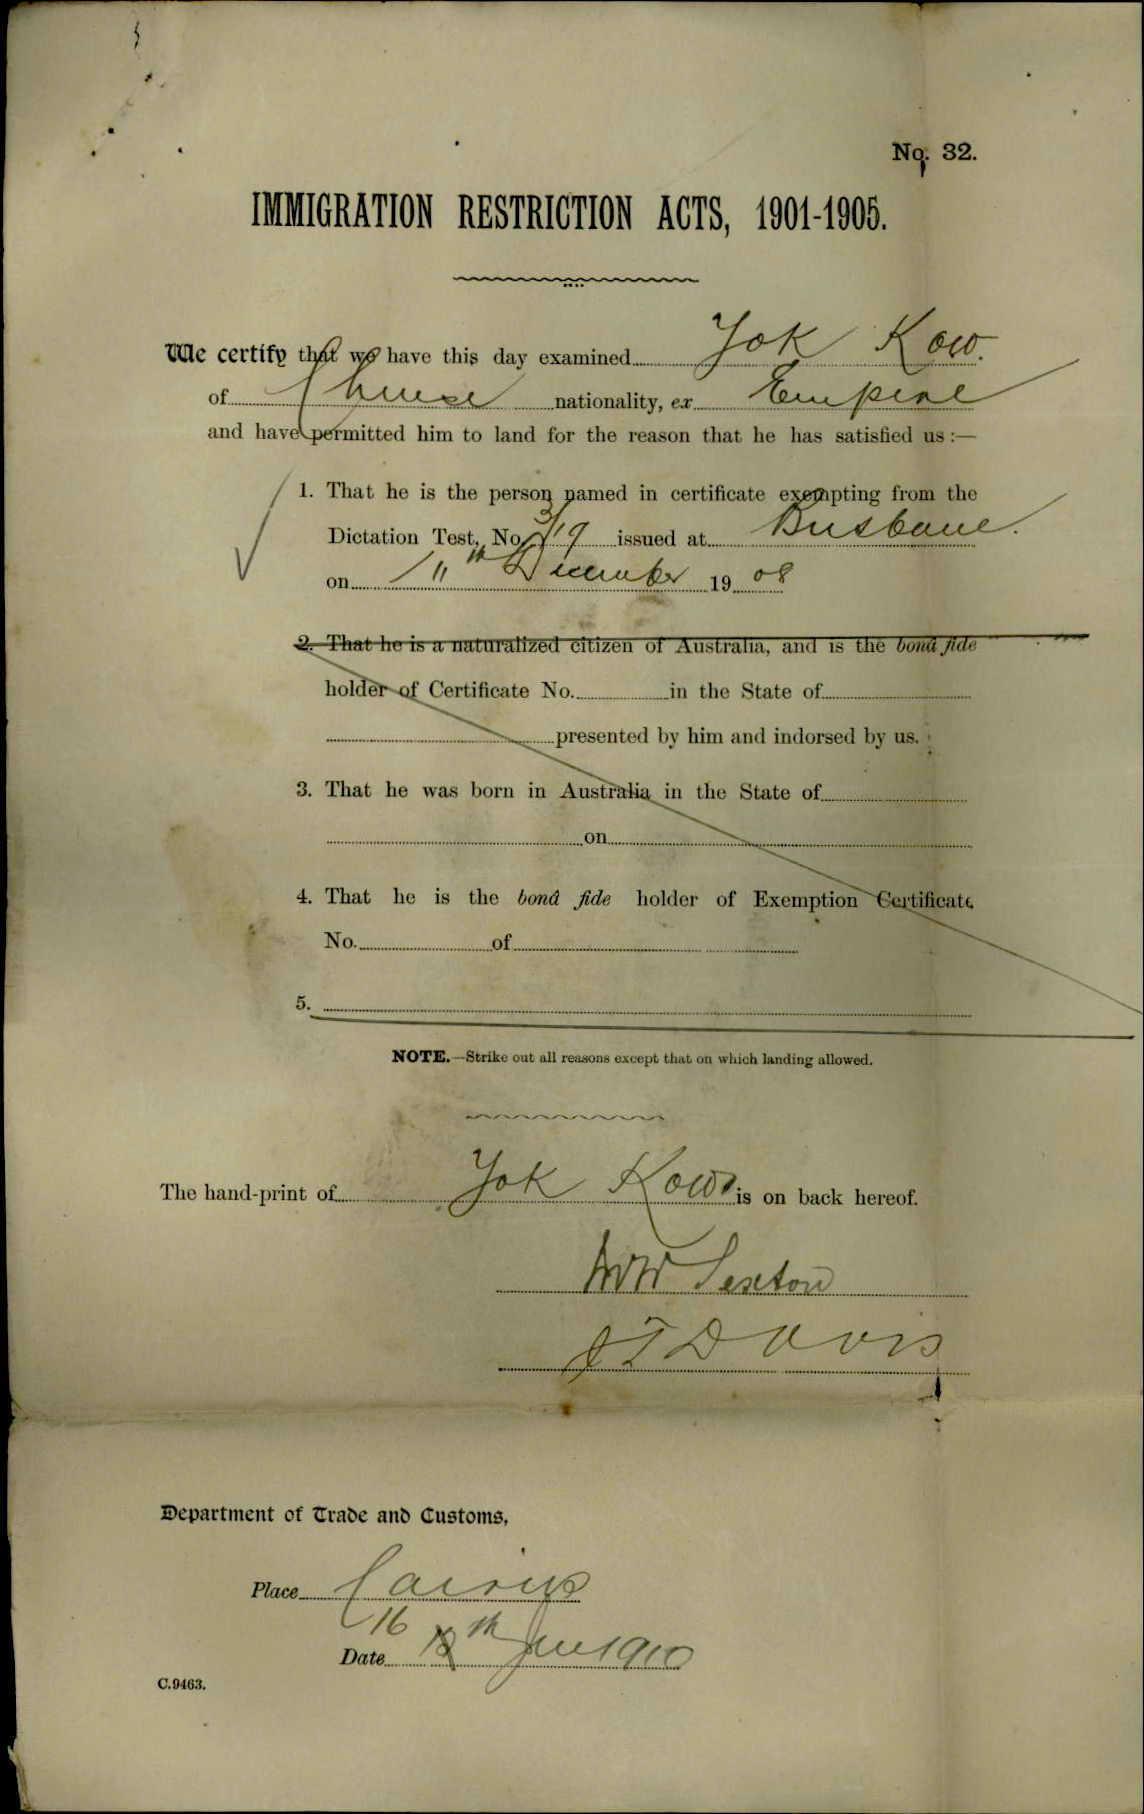 No. 32.
IMMIGRATION RESTRICTION ACTS, 1901-1905.
We certify that we have this day examined Yok Kow.
of Chinese nationality, ex Empire
and have permitted him to land for the reason that he has satisfied us :—
1. That he is the person named in certificate exempting from the
Dictation Test, No. 3/19 issued at Brisbane.
on 11th December 1908
2. That he is a naturalized citizen of Australia, and is the bonâ fide
holder of Certificate No. in the State of
presented by him and indorsed by us.
3. That he was born in Australia in the State of
on
4. That he is the bonâ fide holder of Exemption Certificate
No. of
5.
NOTE.—Strike out all reasons except that on which landing allowed.
The hand-print of Yok Kow is on back hereof.
Sexton
J T Davis
Department of Trade and Customs,
Place Cairns
16
Date th 1910
C.9463.